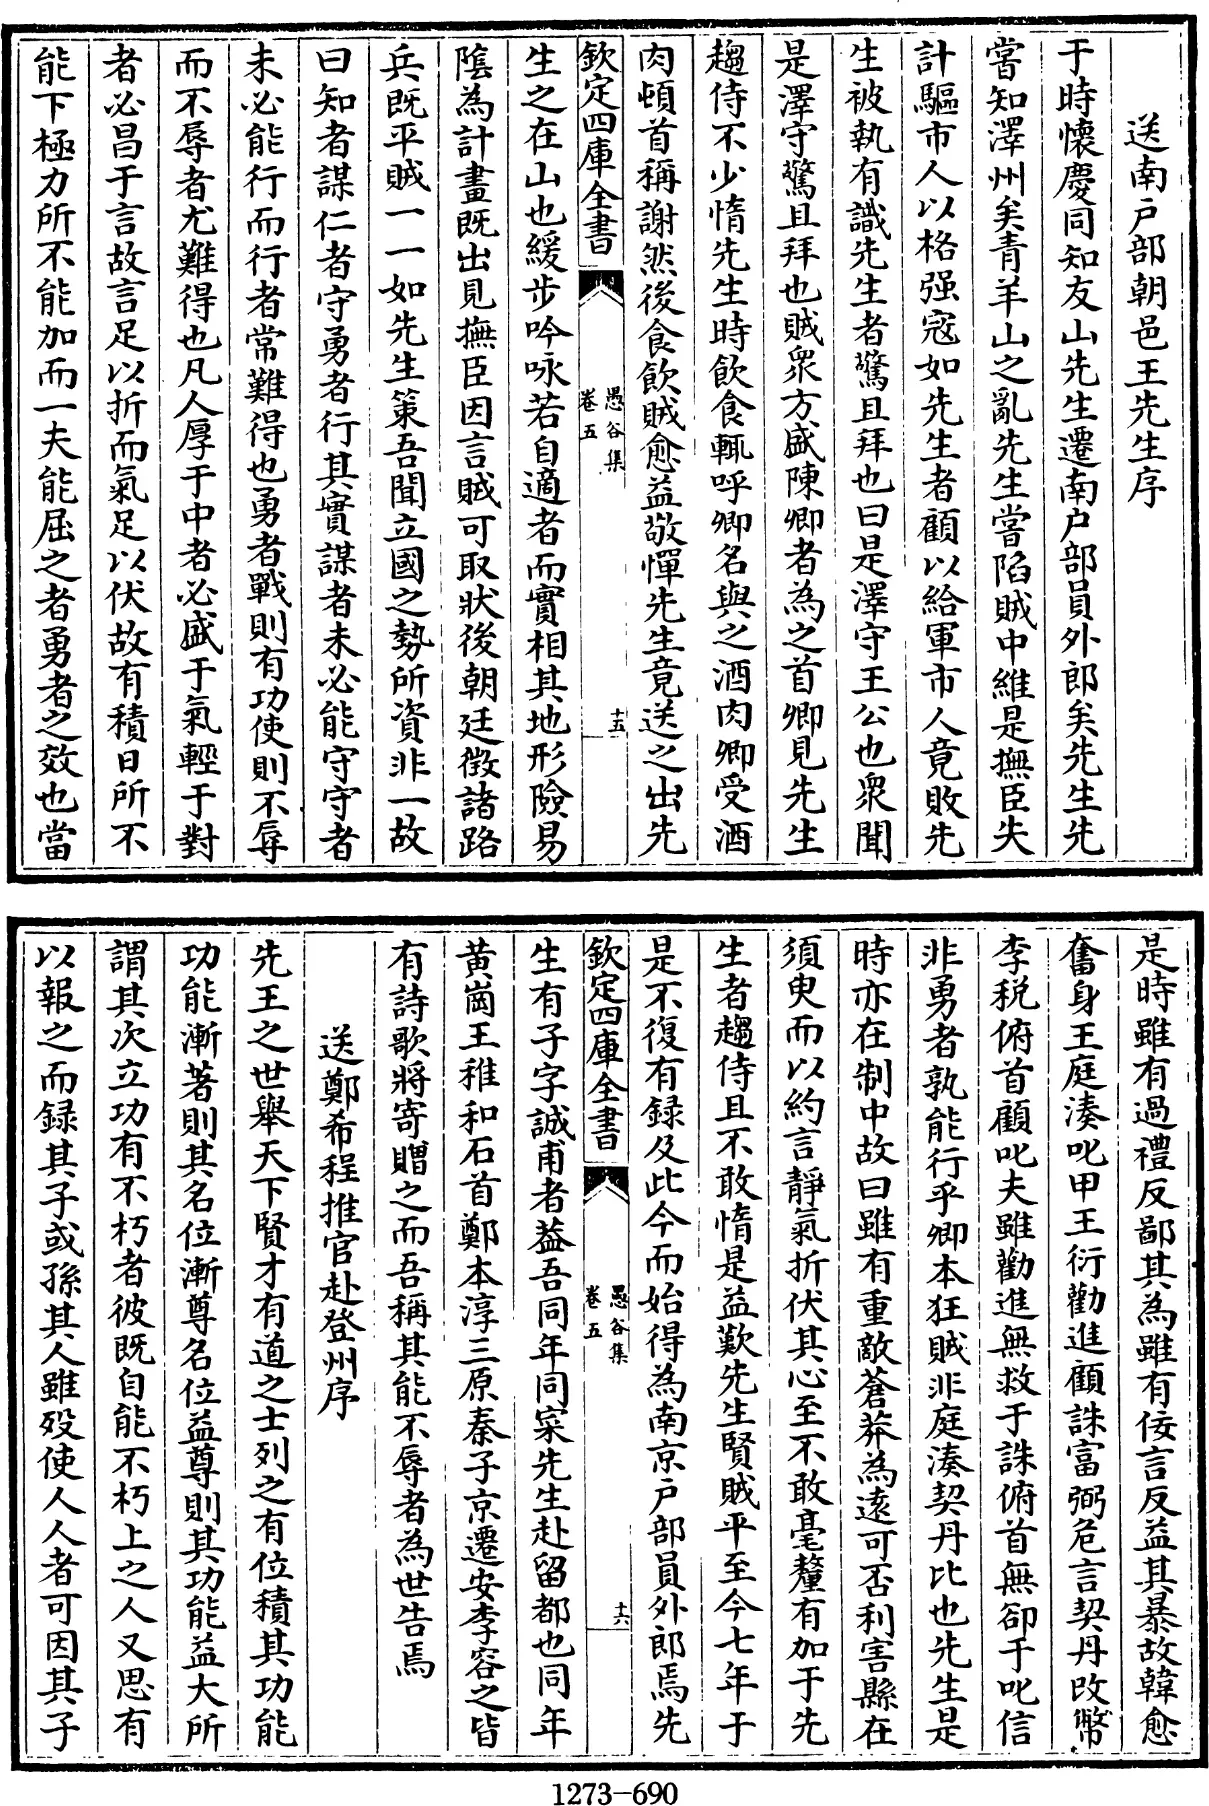 送南户部朝邑王先生序
于時懷慶同知友山先生遷南户部員外郎矣先生先
嘗知澤州矣青羊山之亂先生嘗陷賊中維是撫臣失
計驅市人以格强寇如先生者顧以給軍市人竟敗先
生被執有識先生者驚且拜也曰是澤守王公也衆聞
是澤守驚且拜也賊衆方盛陳卿者為之首卿見先生
趨侍不少惰先生時飲食輒呼卿名與之酒肉卿受酒
肉頓首稱謝然後食飲賊愈益敬憚先生竟送之出先
欽定四庫全書
愚谷集
卷五
十五
生之在山也緩步吟咏若自適者而實相其地形險易
隂為計畫既出見撫臣因言賊可取狀後朝廷徵諸路
兵既平賊一一如先生策吾聞立國之勢所資非一故
曰知者謀仁者守勇者行其實謀者未必能守守者
未必能行而行者常難得也勇者戰則有功使則不辱
而不辱者尤難得也凡人厚于中者必盛于氣輕于對
者必昌于言故言足以折而氣足以伏故有積日所不
能下極力所不能加而一夫能屈之者勇者之效也當
是時雖有過禮反鄙其為雖有佞言反益其暴故韓愈
奮身王庭湊叱甲王衍勸進顧誅富弼危言契丹改幣
李税俯首顧叱夫雖勸進無救于誅俯首無卻于叱信
非勇者孰能行乎卿本狂賊非庭湊契丹比也先生是
時亦在制中故曰雖有重敵蒼莽為遠可否利害縣在
須臾而以約言靜氣折伏其心至不敢毫釐有加于先
生者趨侍且不敢惰是益歎先生賢賊平至今七年于
是不復有録及此今而始得為南京户部員外郎焉先
欽定四庫全書
愚谷集
卷五
十六
生有子字誠甫者葢吾同年同寀先生赴留都也同年
黄崗王稚和石首鄭本淳三原秦子京遷安李容之皆
有詩歌將寄贈之而吾稱其能不辱者為世告焉
送鄭希程推官赴登州序
先王之世舉天下賢才有道之士列之有位積其功能
功能漸著則其名位漸尊名位益尊則其功能益大所
謂其次立功有不朽者彼既自能不朽上之人又思有
以報之而録其子或孫其人雖殁使人人者可因其子
1273-690